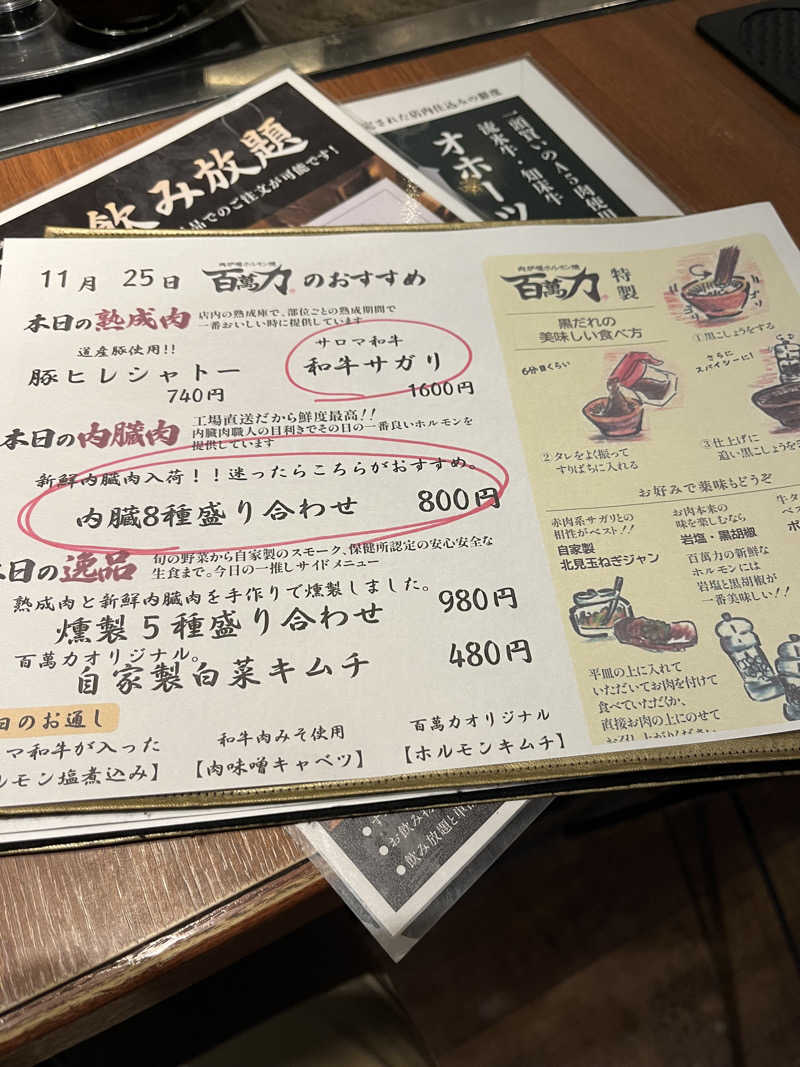 飲み放題
品でのご注文が可能です!
定された店内仕込みの鮮度
一頭買いのA5肉使用
流氷牛・知床牛
オホーツ
11月 25日 肉が旨ホルモン焼 百萬力 のおすすめ
本日の熟成肉 店内の熟成庫で、部位ごとの熟成期間で
一番おいしい時に提供しています
道産豚使用!!
豚ヒレシャトー
740円
サロマ和牛
和牛サガリ
1600円
本日の内臓肉 工場直送だから鮮度最高!!
内臓肉職人の目利きでその日の一番良いホルモンを
提供しています
新鮮内臓肉入荷!!迷ったらこちらがおすすめ。
内臓8種盛り合わせ 800円
本日の逸品 旬の野菜から自家製のスモーク、保健所認定の安心安全な
生食まで。今日の一推しサイドメニュー
熟成肉と新鮮内臓肉を手作りで燻製しました。
燻製5種盛り合わせ 980円
百萬力オリジナル。
自家製白菜キムチ 480円
日のお通し
マ和牛が入った
ルモン塩煮込み】
和牛肉みそ使用
【肉味噌キャベツ】
百萬力オリジナル
【ホルモンキムチ】
肉が旨ホルモン焼
百萬力 特製
黒だれの
美味しい食べ方
ゴリ
ゴリ
①黒こしょうをする
6分目くらい
②タレをよく振って
すりばちに入れる
さらに
スパイシーに!
③仕上げに
追い黒こしょう
お好みで薬味もどうぞ
赤肉系サガリとの
相性がベスト!!
自家製
北見玉ねぎジャン
お肉本来の
味を楽しむなら
岩塩・黒胡椒
百萬力の新鮮な
ホルモンには
岩塩と黒胡椒が
一番美味しい!!
牛タ
ベス
ポ
平皿の上に入れて
いただいてお肉を付けて
食べていただくか、
直接お肉の上にのせて
お召し上がりください
●お飲み物
●飲み放題と単